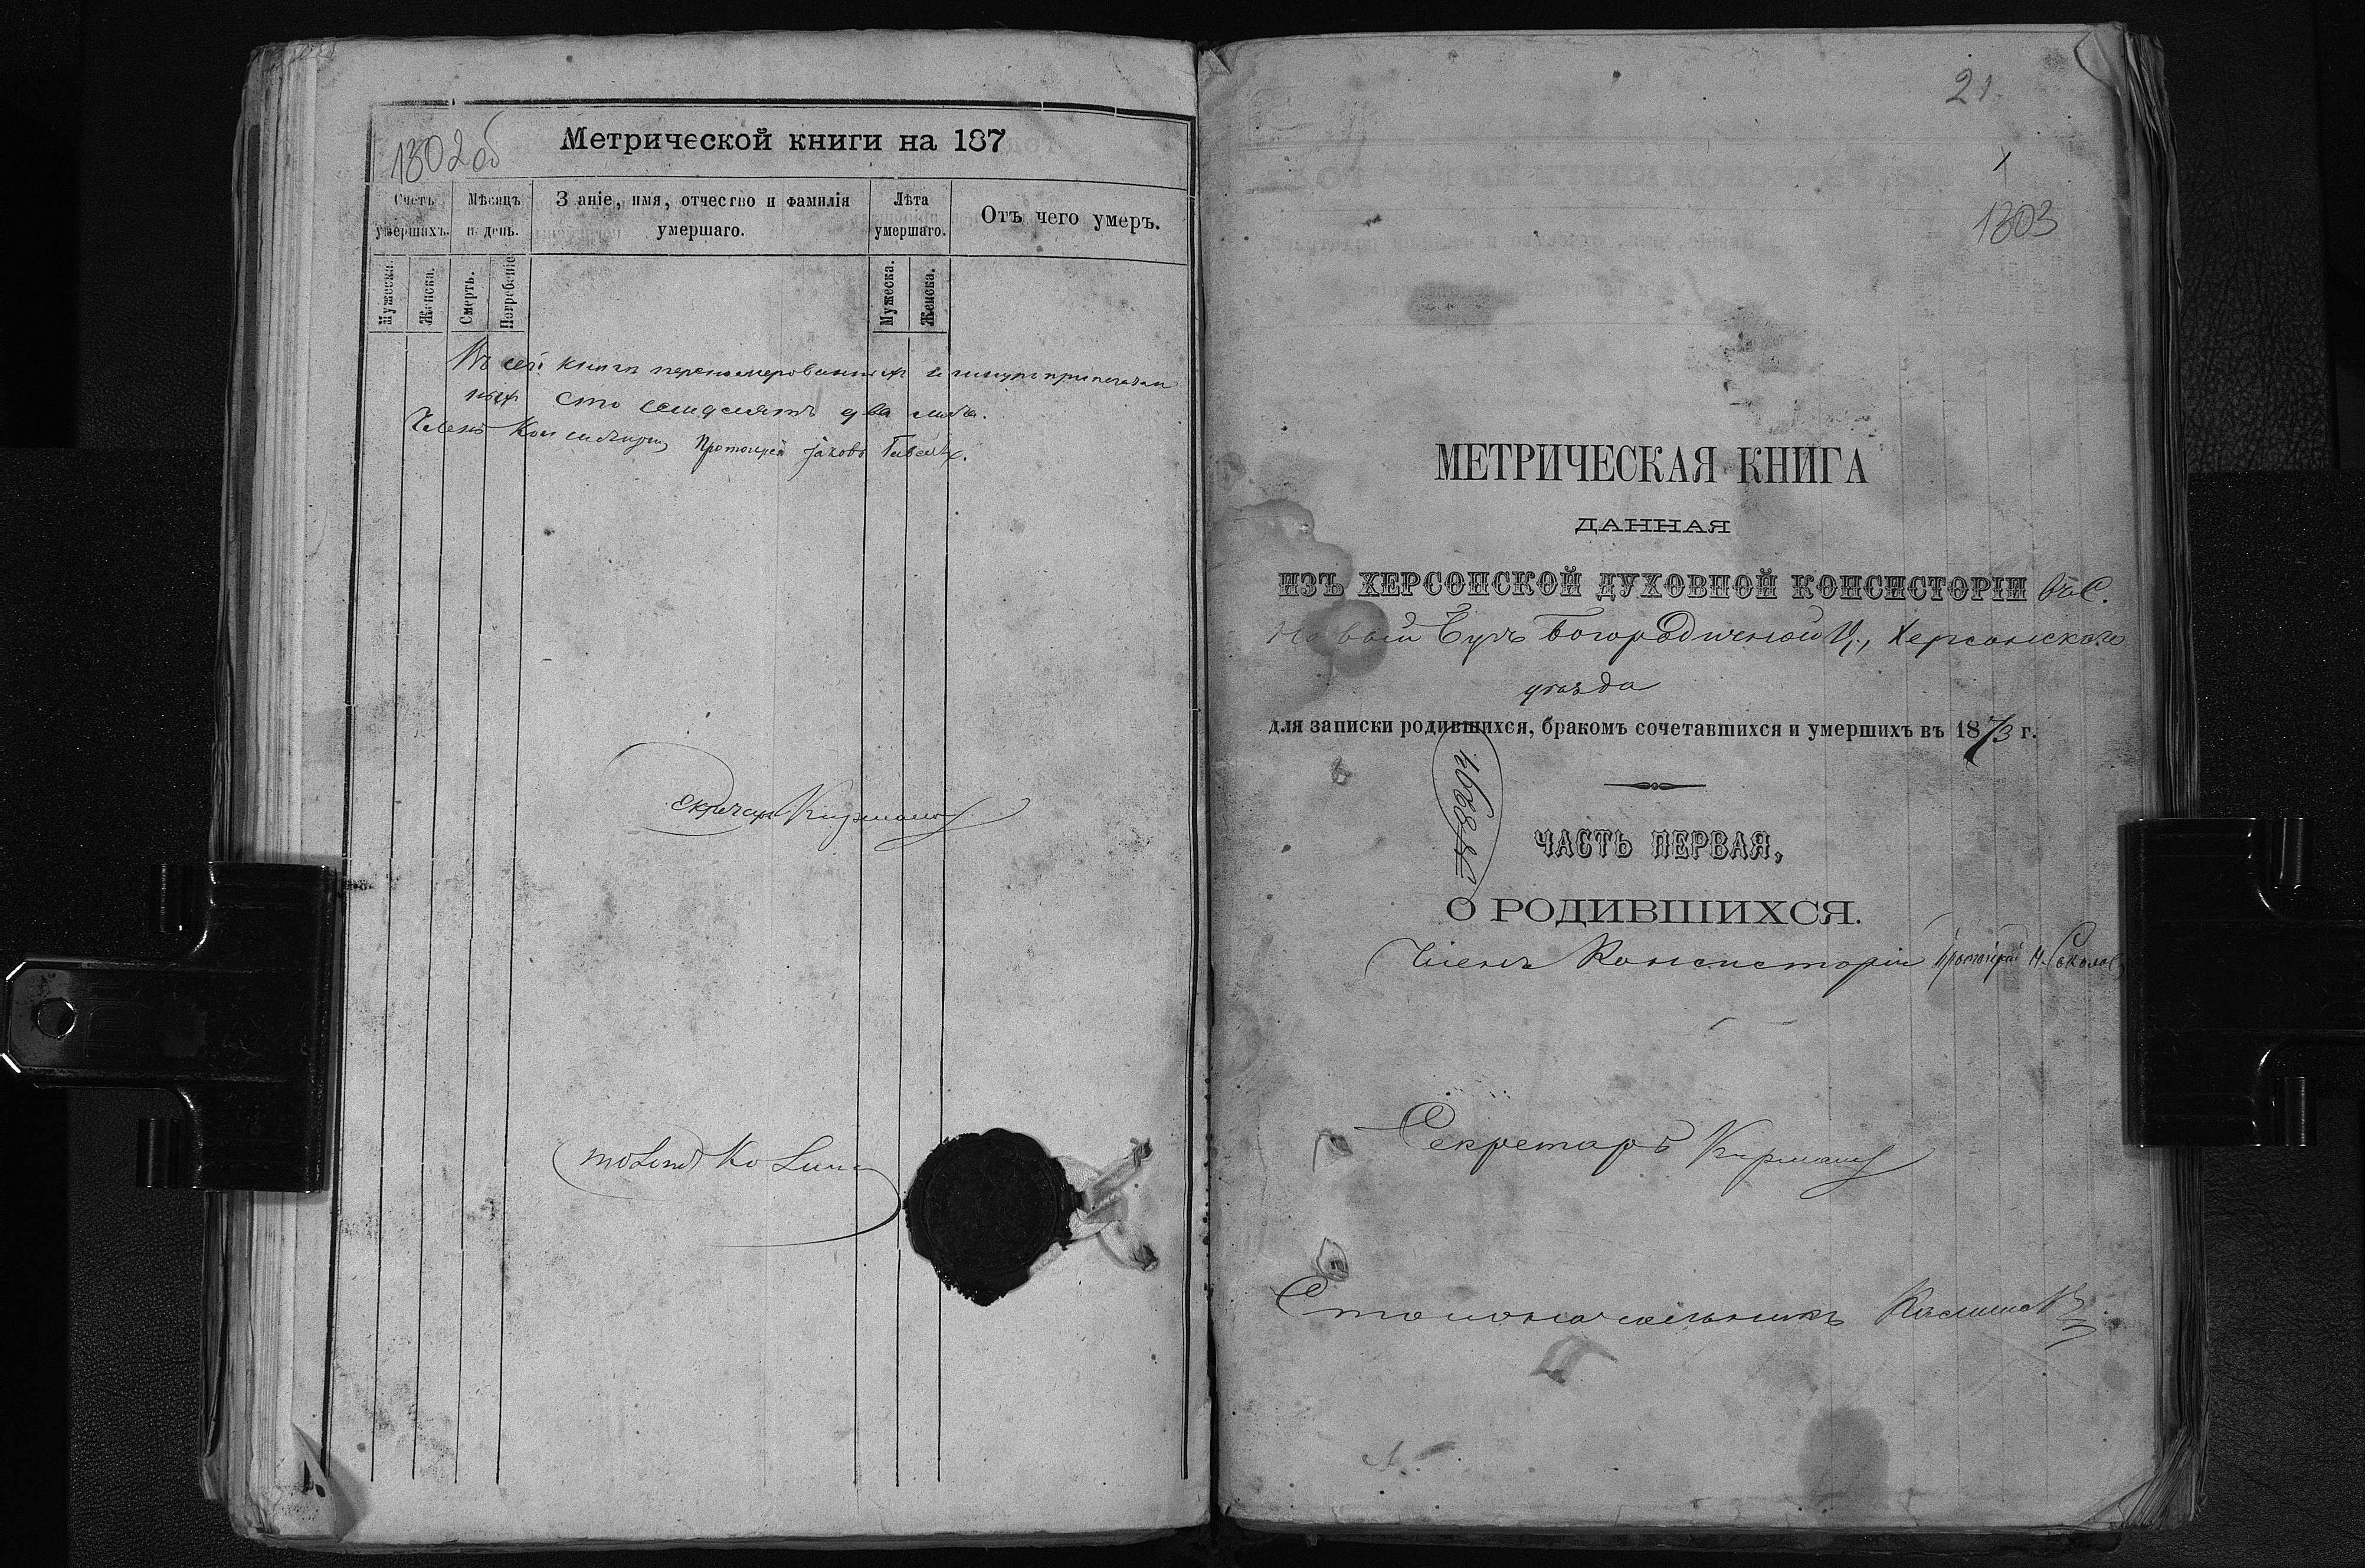 1302 об
Метрической книги на 187
Счетъ умершихъ.
Мѣсяцъ и день.
З аніе, имя, отчество и фамилія умершаго.
Лѣта умершаго.
Отъ чего умеръ.
Мужеска.
Женска.
Смерть.
Погребеніе
Мужеска.
Женска.
Въ сей книгѣ перенумерованныхъ и
ныхъ сто семдесятъ два листа.
Членъ Консисторіи, Протоіерей Іаковъ
Секретарь Кирманъ
21.
1
1303
МЕТРИЧЕСКАЯ КНИГА
ДАННАЯ
ИЗЪ ХЕРСОНСКОЙ ДУХОВНОЙ КОНСИСТОРІИ въ С.
Новый Бугъ Богородичной Ц., Херсонскаго
уѣзда
для записки родившихся, бракомъ сочетавшихся и умершихъ въ 1873 г.
№ 8294
ЧАСТЬ ПЕРВАЯ,
О РОДИВШИХСЯ.
Членъ Консисторіи Протоіерей Н. Соколов
Секретарь Кирманъ
Столоначальникъ